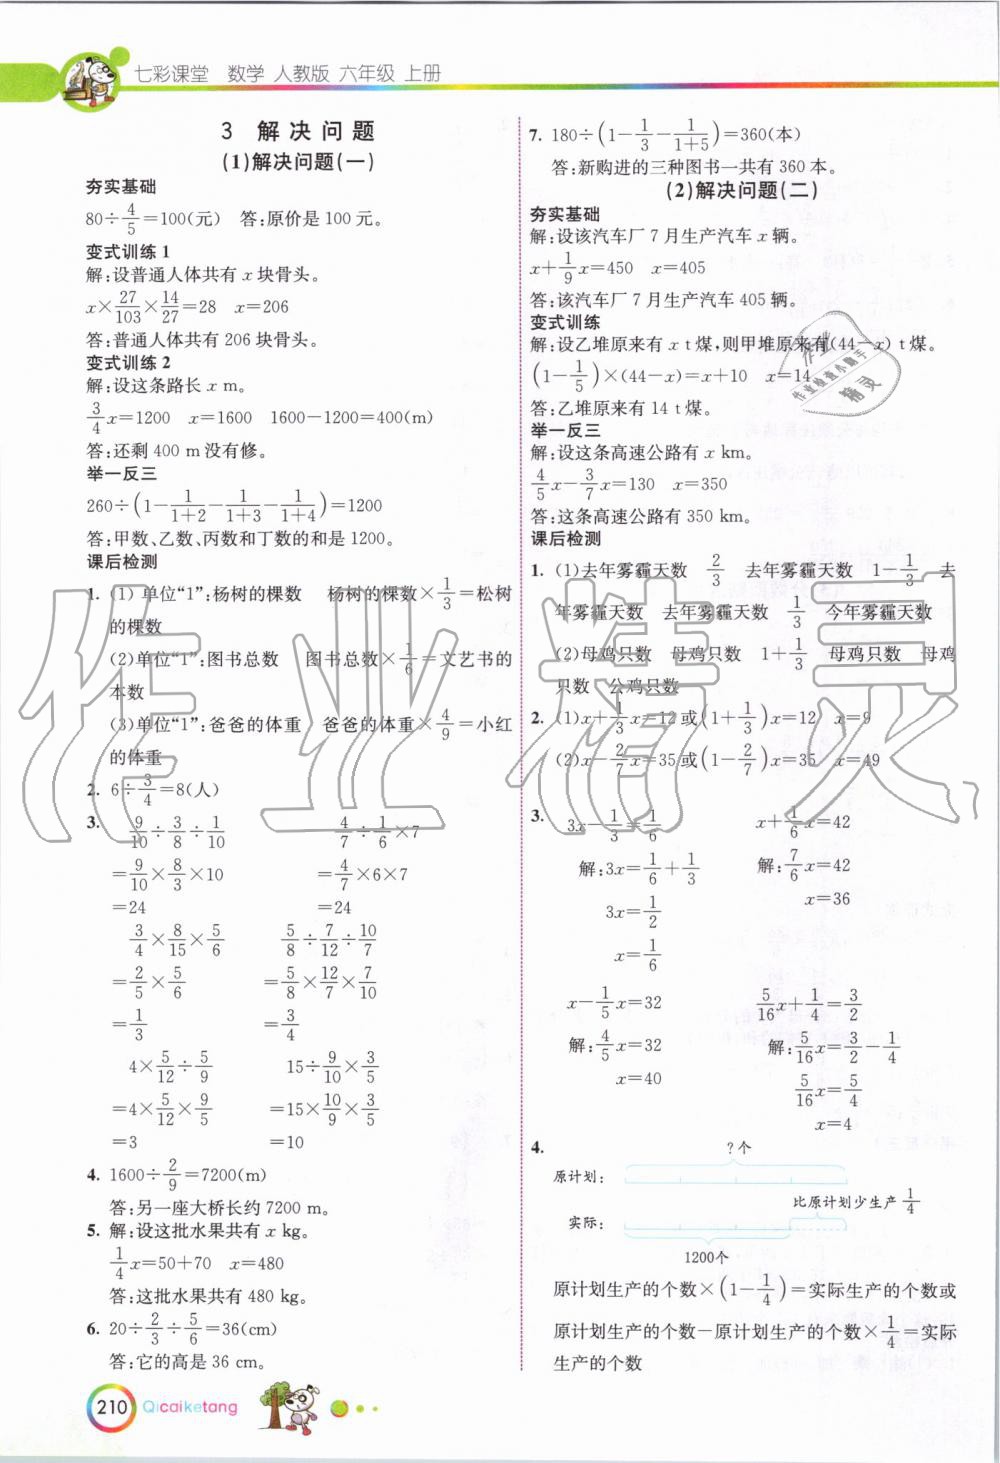 七彩课堂 数学 人教版 六年级 上册
3 解决问题
(1)解决问题(一)
夯实基础
80÷4/5=100(元) 答:原价是 100 元。
变式训练 1
解:设普通人体共有 x 块骨头。
x×27/103×14/27=28 x=206
答:普通人体共有 206 块骨头。
变式训练 2
解:设这条路长 x m。
3/4x=1200 x=1600 1600-1200=400(m)
答:还剩 400 m 没有修。
举一反三
260÷(1-1/(1+2)-1/(1+3)-1/(1+4))=1200
答:甲数、乙数、丙数和丁数的和是 1200。
课后检测
1. (1)单位“1”:杨树的棵数 杨树的棵数×1/3=松树
的棵数
(2)单位“1”:图书总数 图书总数×1/6=文艺书的
本数
(3)单位“1”:爸爸的体重 爸爸的体重×4/9=小红
的体重
2. 6÷3/4=8(人)
3. 9/10÷3/8÷1/10 4/7÷1/6×7
=9/10×8/3×10 =4/7×6×7
=24 =24
3/4×8/15×5/6 5/8÷7/12÷10/7
=2/5×5/6 =5/8×12/7×7/10
=1/3 =3/4
4×5/12÷5/9 15÷9/10×3/5
=4×5/12×9/5 =15×10/9×3/5
=3 =10
4. 1600÷2/9=7200(m)
答:另一座大桥长约 7200 m。
5. 解:设这批水果共有 x kg。
1/4x=50+70 x=480
答:这批水果共有 480 kg。
6. 20÷2/3÷5/6=36(cm)
答:它的高是 36 cm。
7. 180÷(1-1/3-1/(1+5))=360(本)
答:新购进的三种图书一共有 360 本。
(2)解决问题(二)
夯实基础
解:设该汽车厂 7 月生产汽车 x 辆。
x+1/9x=450 x=405
答:该汽车厂 7 月生产汽车 405 辆。
变式训练
解:设乙堆原来有 x t 煤,则甲堆原来有(44-x) t 煤。
(1-1/5)×(44-x)=x+10 x=14
答:乙堆原来有 14 t 煤。
举一反三
解:设这条高速公路有 x km。
4/5x-3/7x=130 x=350
答:这条高速公路有 350 km。
课后检测
1. (1)去年雾霾天数 2/3 去年雾霾天数 1-1/3 去
年雾霾天数 去年雾霾天数 1/3 今年雾霾天数
(2)母鸡只数 母鸡只数 1+1/3 母鸡只数 母鸡
只数 公鸡只数
2. (1)x+1/3x=12或(1+1/3)x=12 x=9
(2)x-2/7x=35或(1-2/7)x=35 x=49
3. 3x-1/3=1/6 x+1/6x=42
解:3x=1/6+1/3 解:7/6x=42
3x=1/2 x=36
x=1/6
x-1/5x=32 5/16x+1/4=3/2
解:4/5x=32 解:5/16x=3/2-1/4
x=40 5/16x=5/4
x=4
4. ?个
原计划:
比原计划少生产1/4
实际:
1200个
原计划生产的个数×(1-1/4)=实际生产的个数或
原计划生产的个数-原计划生产的个数×1/4=实际
生产的个数
210 Qicaiketang
作业精灵
作业
作业检查小助手
精灵